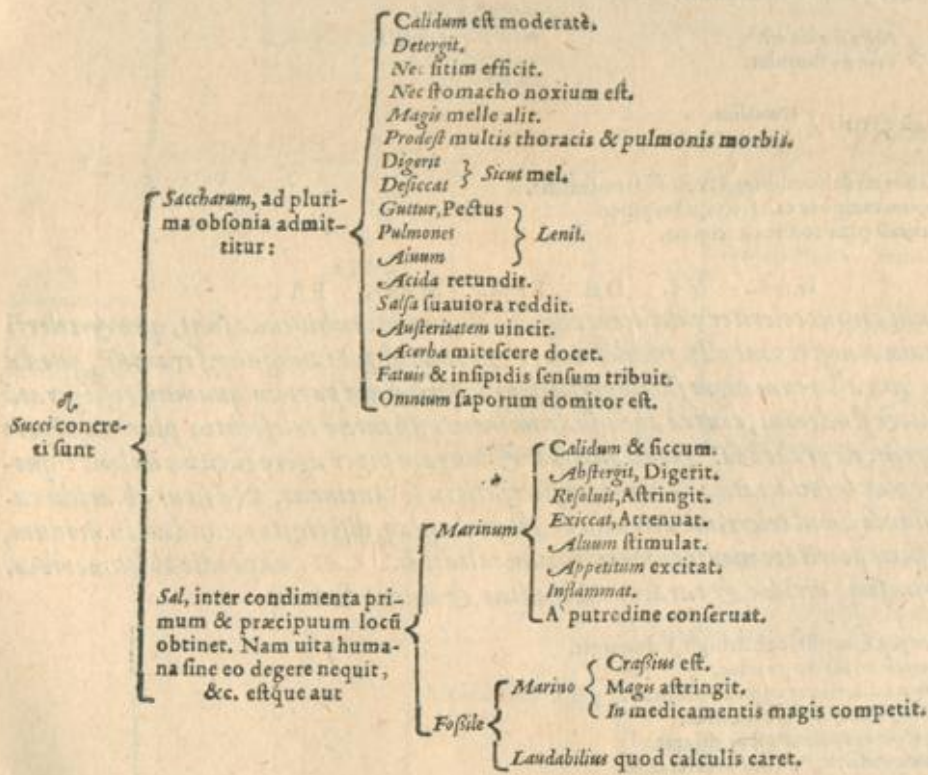 A
Succi concre-
ti sunt
Saccharum, ad pluri-
ma obsonia admit-
titur:
Calidum est moderatè.
Detergit.
Nec sitim efficit.
Nec stomacho noxium est.
Magis melle alit.
Prodest multis thoracis & pulmonis morbis.
Digerit
Desiccat
Sicut mel.
Guttur, Pectus
Pulmones
Aluum
Lenit.
Acida retundit.
Salsa suauiora reddit.
Austeritatem uincit.
Acerba mitescere docet.
Fatuis & insipidis sensum tribuit.
Omnium saporum domitor est.
Sal, inter condimenta pri-
mum & præcipuum locũ
obtinet. Nam uita huma-
na sine eo degere nequit,
&c. estque aut
Marinum
Calidum & siccum.
Abstergit, Digerit.
Resoluit, Astringit.
Exiccat, Attenuat.
Aluum stimulat.
Appetitum excitat.
Inflammat.
A' putredine conseruat.
Foßile
Marino
Craßius est.
Magis astringit.
In medicamentis magis competit.
Laudabilius quod calculis caret.